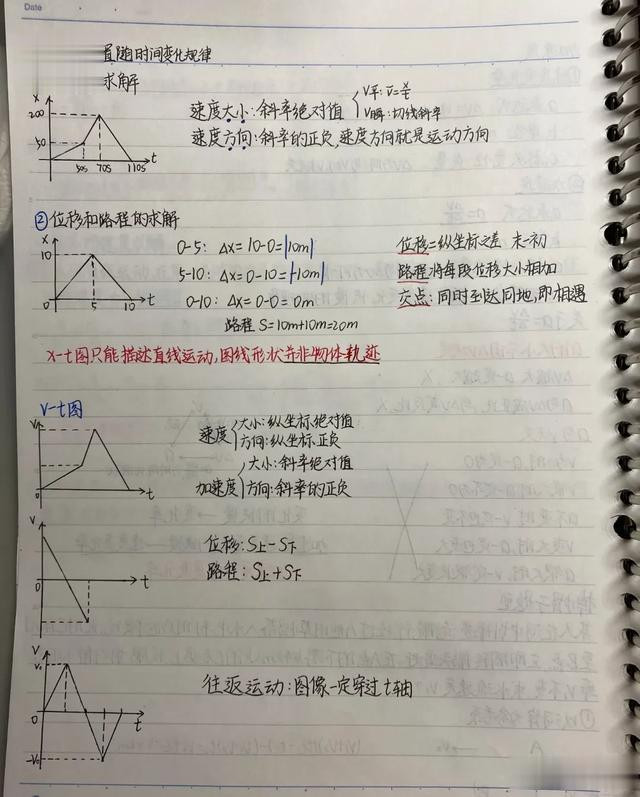 Date
置随时间变化规律
求解
x
200
50
0
50s
70s
110s
t
速度大小:斜率绝对值
V平: v̄=x/t
V瞬:切线斜率
速度方向:斜率的正负,速度方向就是运动方向
②位移和路程的求解
x
10
0
5
10
t
0-5: Δx=10-0=|10m|
5-10: Δx=0-10=|-10m|
0-10: Δx=0-0=0m
路程 S=10m+10m=20m
位移=纵坐标之差 末-初
路程:将每段位移大小相加
交点:同时到达同地,即相遇
x-t图只能描述直线运动,图线形状并非物体轨迹
V-t图
V
0
t
速度
大小:纵坐标绝对值
方向:纵坐标正负
加速度
大小:斜率绝对值
方向:斜率的正负
V
0
t
位移:S上-S下
路程:S上+S下
V
V₀
0
-V₀
t
往返运动:图像一定穿过t轴